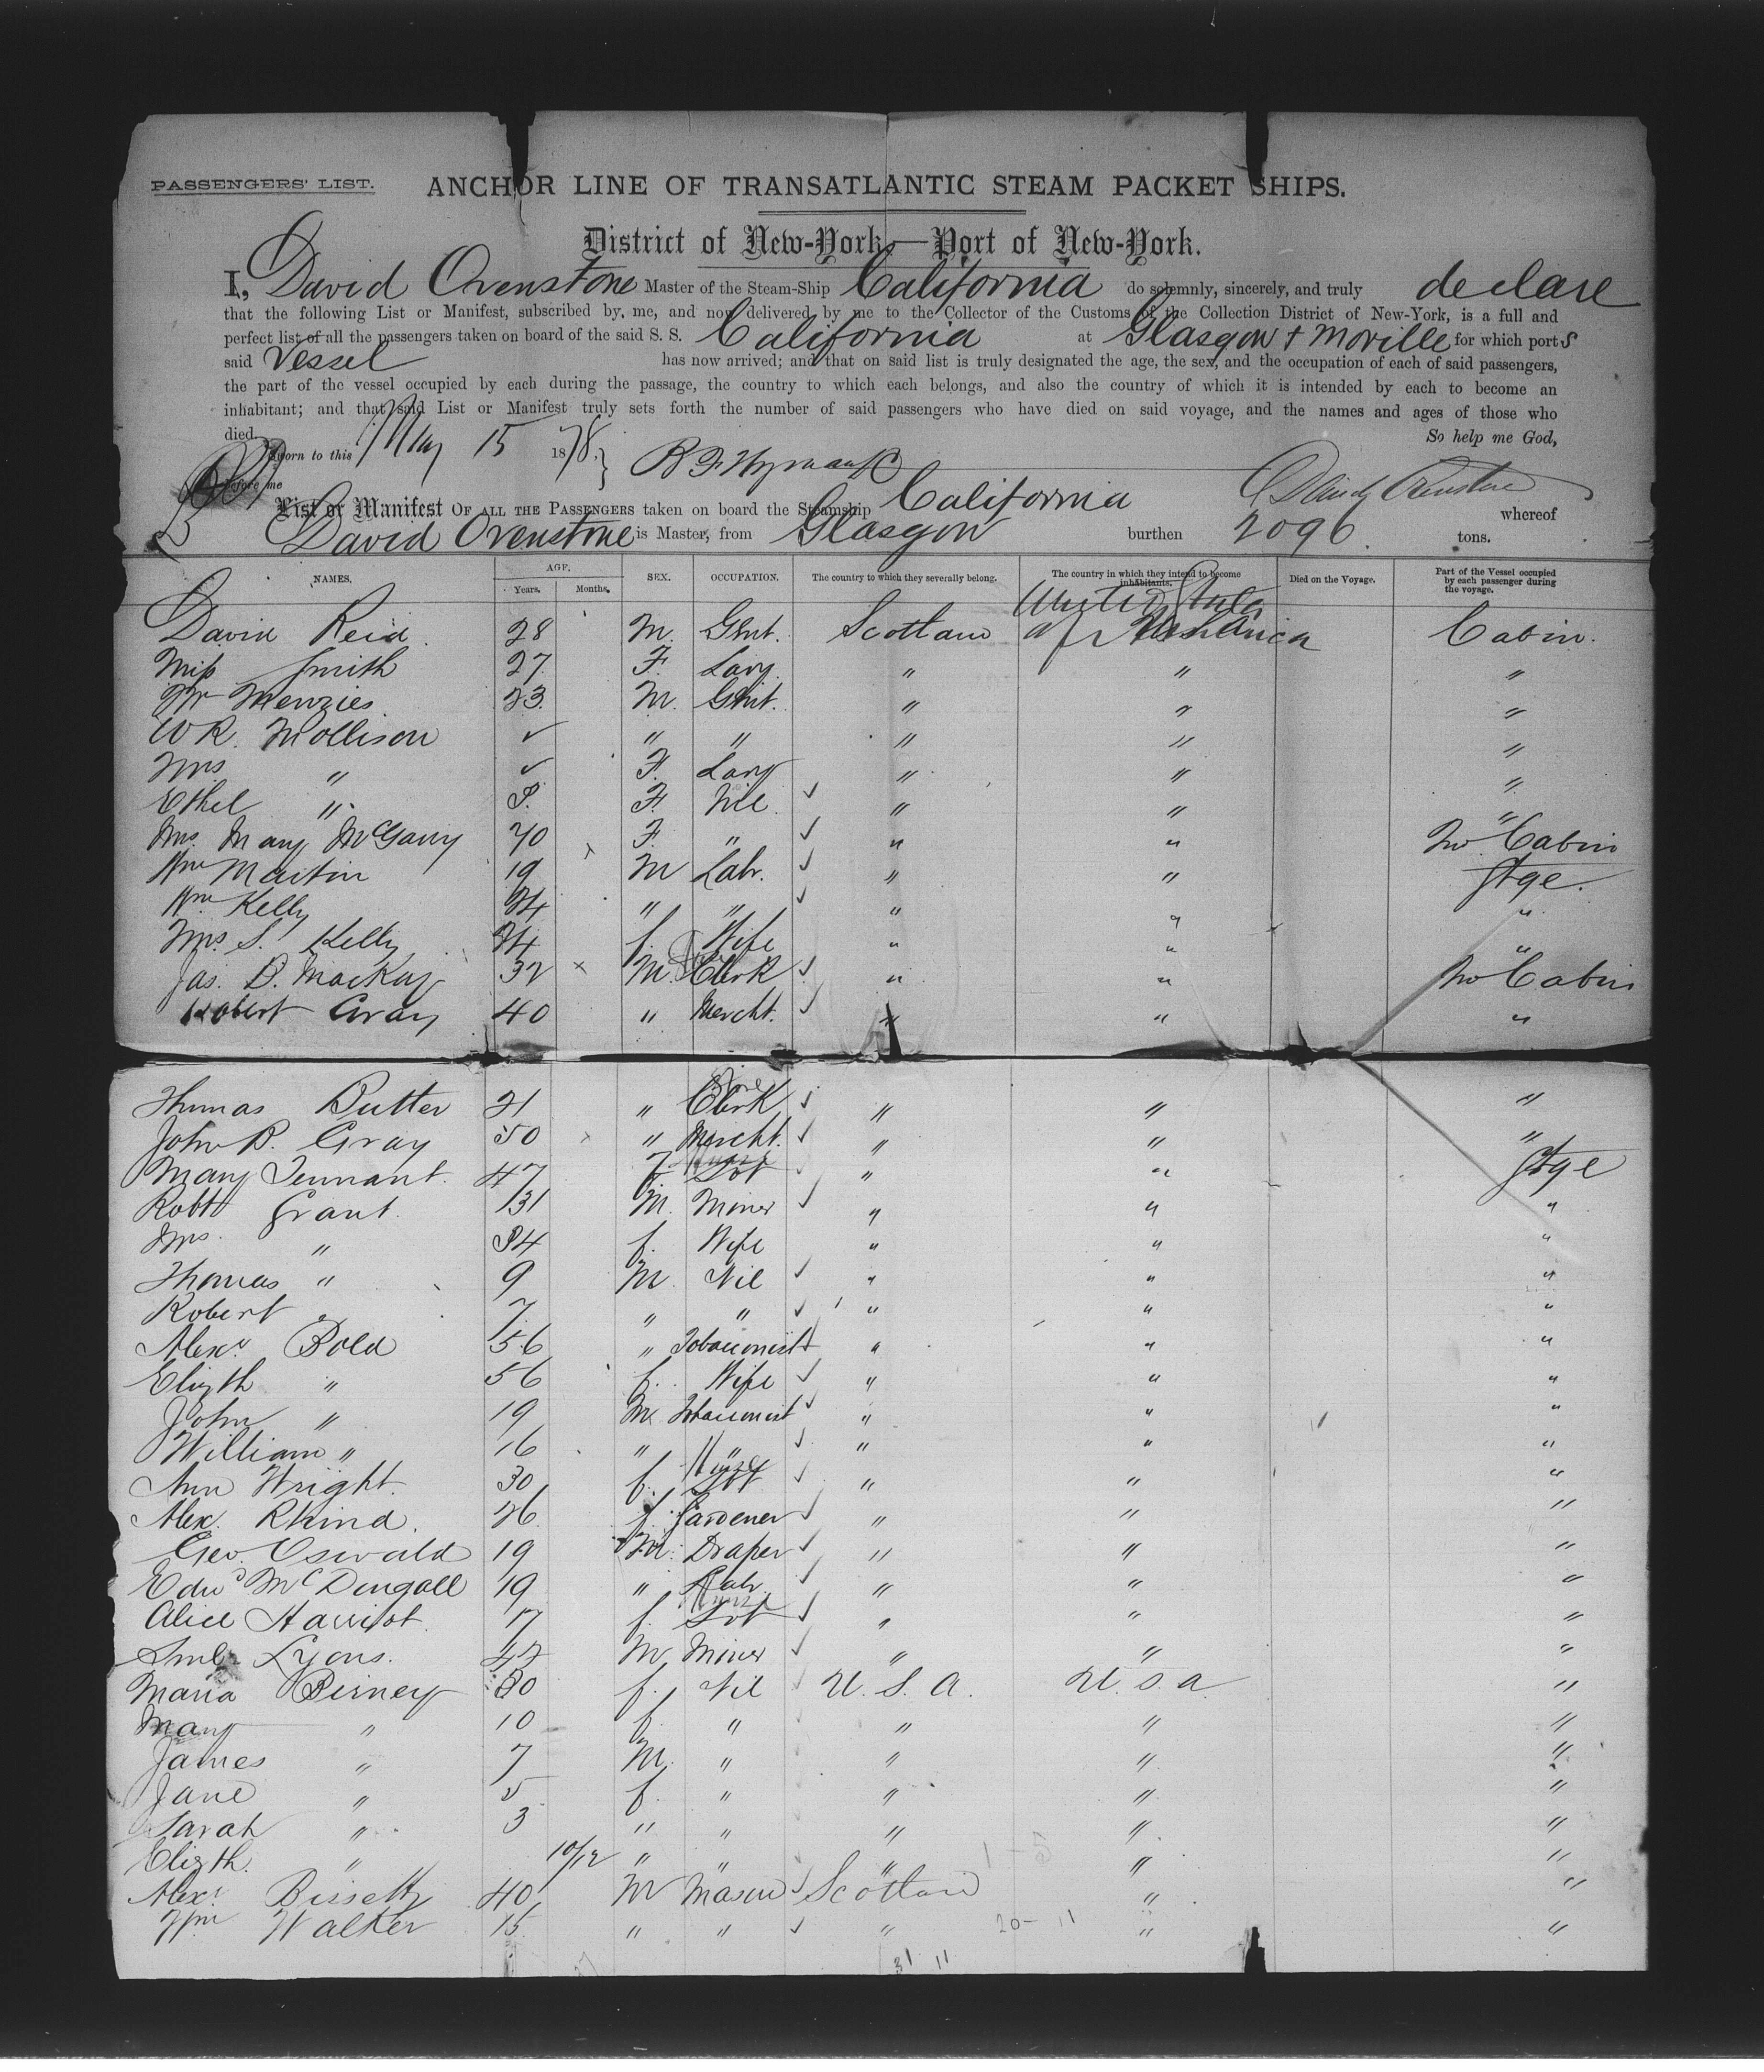 PASSENGERS' LIST.
ANCHOR LINE OF TRANSATLANTIC STEAM PACKET SHIPS.
District of New-York—Port of New-York.
I, David Ovenstone Master of the Steam-Ship California do solemnly, sincerely, and truly declare
that the following List or Manifest, subscribed by me, and now delivered by me to the Collector of the Customs of the Collection District of New-York, is a full and
perfect list of all the passengers taken on board of the said S. S. California at Glasgow + Moville for which ports
said Vessel has now arrived; and that on said list is truly designated the age, the sex, and the occupation of each of said passengers,
the part of the vessel occupied by each during the passage, the country to which each belongs, and also the country of which it is intended by each to become an
inhabitant; and that said List or Manifest truly sets forth the number of said passengers who have died on said voyage, and the names and ages of those who
died.
So help me God,
Sworn to this May 15 1878.
before me
David Ovenstone
List or Manifest OF ALL THE PASSENGERS taken on board the Steamship California whereof
David Ovenstone is Master, from Glasgow burthen 2096 tons.
NAMES. AGE. Years. Months. SEX. OCCUPATION. The country to which they severally belong. The country in which they intend to become inhabitants. Died on the Voyage. Part of the Vessel occupied by each passenger during the voyage.
David Reid 28 M. Gent. Scotland United States of America Cabin.
Miss Smith 27 F. Lady " " "
Mr Menzies 23 M. Gent. " " "
W R. Mollison ✓ " " " " "
Mrs " ✓ F. Lady " " "
Ethel " F. Nil ✓ " " "
Mrs. Mary McGarry 70 F. " ✓ " " Cabin
Wm Martin 19 M Labr. ✓ " " Stge.
Wm Kelly 24 " " ✓ " " "
Mrs. S. Kelly 24 f. Wife " " "
Jas. B. MacKay 32 M. Clerk ✓ " " Cabin
Robert Gray 40 " Mercht. ✓ " " "
Thomas Butter 21 " Clerk ✓ " " "
John R. Gray 50 " Mercht. ✓ " " "
Mary Tennant. 47 f. Nurse " " Stge
Robt Grant 31 M. Miner ✓ " " "
Mrs. " 34 f. Wife " " "
Thomas " 9 M Nil ✓ " " "
Robert 7 " " ✓ " " "
Alexr Bold 56 " Tobacconist " " "
Elizth " 56 f. Wife ✓ " " "
John " 19 M Tobacconist ✓ " " "
William " 16 " " ✓ " " "
Ann Wright. 30 f. Nurse ✓ " " "
Alex. Rhind. 26 f. Gardener ✓ " " "
Geo. Oswald 19 M. Draper ✓ " " "
Edwd McDougall 19 " Labr ✓ " " "
Alice Harriot. 17 f. Nurse ✓ " " "
Saml Lyons. 42 M Miner ✓ " " "
Maria Birney 30 f. Nil U. S. A. U. S. A. "
Mary " 10 f. " " " "
James " 7 M. " " " "
Jane " 5 f. " " " "
Sarah " 3 " " " " "
Elizth. " 10/12 " " " " "
Alexr Bissett 40 M Mason ✓ Scotland " "
Wm Walker 15 " " ✓ " " "
20- 11
31 11